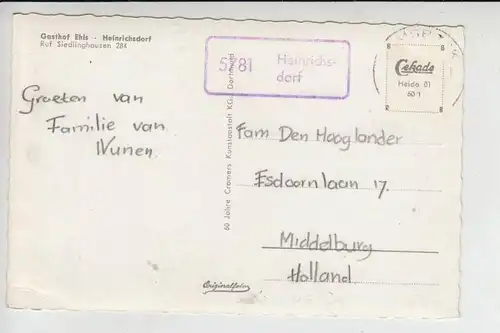 Gasthof Ehls - Heinrichsdorf
Ruf Siedlinghausen 284
Groeten van
Familie van
Nunen.
60 Jahre Cramers Kunstanstalt KG., Dortmund
Originalfoto
5781 Heinrichs-
dorf
Cekade
Heido 81
60/1
Fam Den Hooglander
Esdoornlaan 17.
Middelburg
Holland.